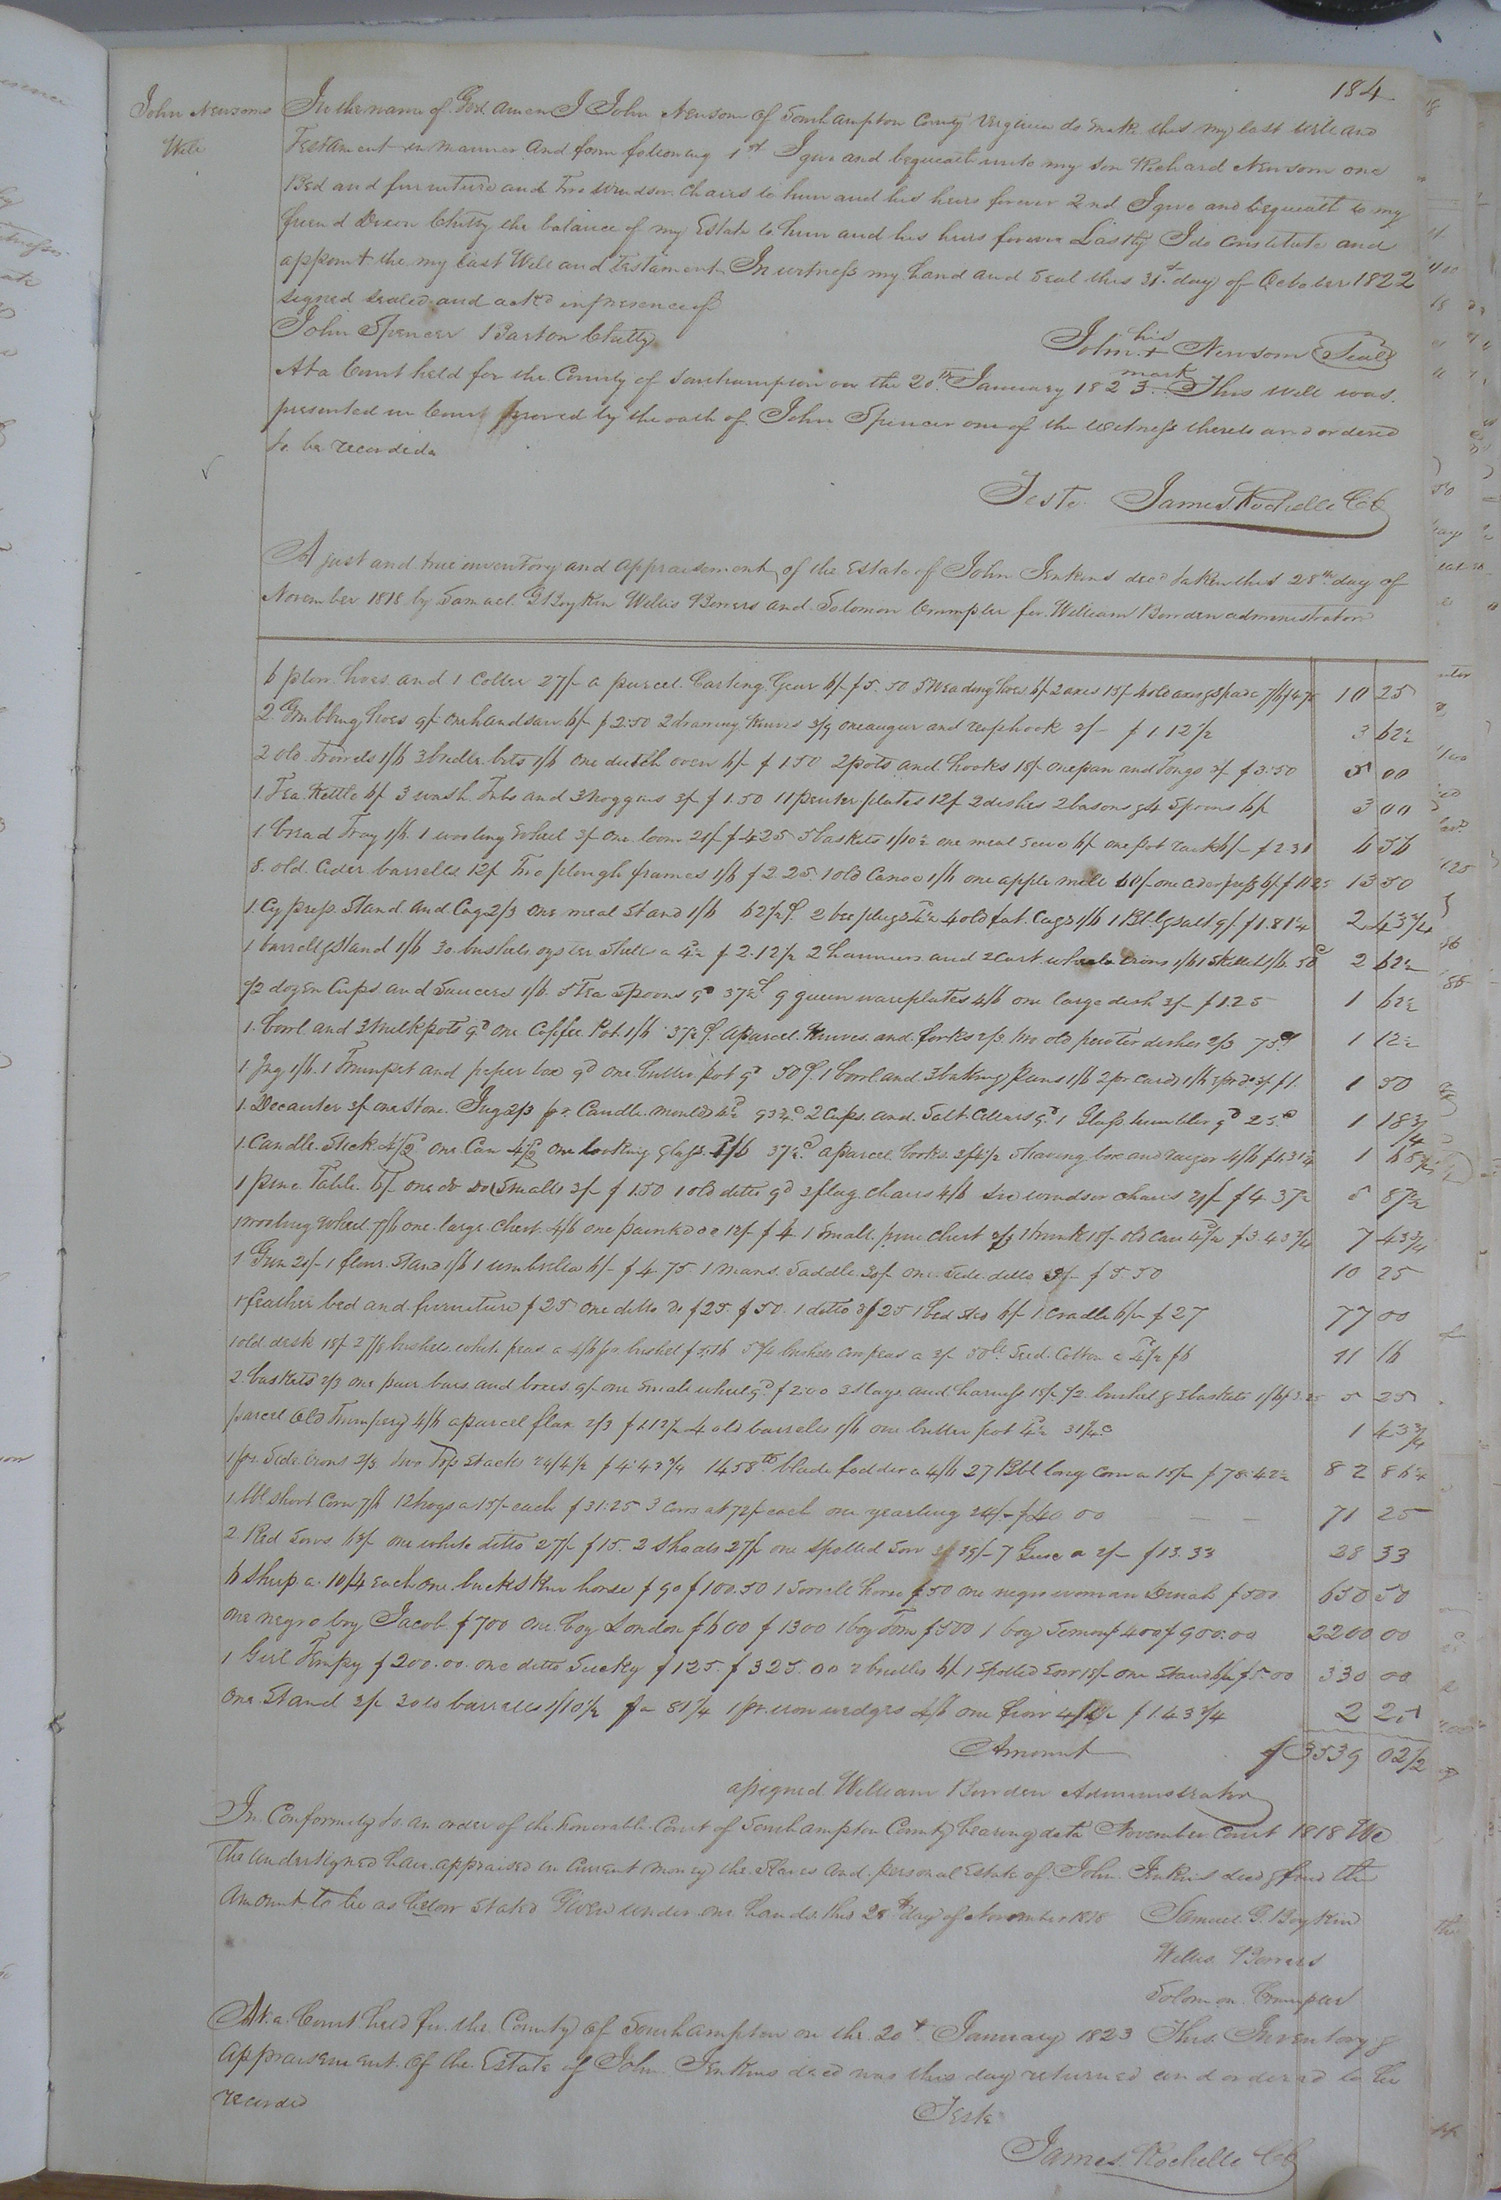 184
John Newsoms
Will
In the name of God amen I John Newsom of Southampton County Virginia do make this my last will and
Testament in manner and form following 1st I give and bequeath unto my son Richard Newsom one
Bed and furniture and two windsor chairs to him and his heirs forever 2nd I give and bequeath to my
friend Dixon Chitty the balance of my Estate to him and his heirs forever Lastly I do constitute and
appoint the my last Will and Testament In witness my hand and Seal this 31st day of October 1822
signed sealed and ackd in presence of
John Spencer Barton Chitty
his
John + Newsom Seal
mark
At a Court held for the County of Southampton on the 20th January 1823. This will was
presented in Court proved by the oath of John Spencer one of the witness thereto and ordered
to be recorded
Teste James Rochelle CC
A just and true inventory and appraisement of the Estate of John Jenkins decd taken this 28th day of
November 1818 by Samuel G Boykin Willis Bowers and Solomon Crumpler for William Bowden administrator
6 plow hoes and 1 Coller 27/- a parcel Carting Gear 6/- $5.50 5 Weading hoes 6/ 2 axes 15/- 4 old axes & spade 7/6 $4.75 10 25
2 Grubbing hoes 9/- one handsaw 6/- $2.50 2 drawing knives 3/9 one augur and reaphook 3/- $1.12½ 3 62½
2 old Trowels 1/6 3 bridle bits 1/6 one dutch oven 6/- $1.50 2 pots and hooks 18/- one pan and Tongs 3/ $3.50 5 00
1 Tea Kettle 6/ 3 wash Tubs and 3 noggins 3/ $1.50 11 pewter plates 12/ 2 dishes 2 basons & 4 Spoons 6/ 3 00
1 bread Tray 1/6 1 wooling wheel 3/- one loom 21/- $4.25 5 baskets 1/10½ one meal seive 6/ one pot rack 6/- $2.31 6 56
8 old Cider barrells 12/ Two plough frames 1/6 $2.25 1 old Canoe 1/6 one apple mill 60/- one cider press 6/ $11.25 13 50
1 Cypress Stand and Cag 2/3 one meal Stand 1/6 62½c 2 bee plugs 4½d 4 old fat Cags 1/6 1 Bbl & salt 9/ $1.81¼ 2 43¾
1 barrell & Stand 1/6 30 bushels oyster shells a 4½ $2.12½ 2 hammers and 2 cart wheele irons 1/6 1 Skillet 1/6 50c 2 62½
½ dozen Cups and Saucers 1/6 5 Tea Spoons 9d 37½c 9 queen ware plates 4/6 one large dish 3/- $1.25 1 62½
1 bowl and 3 milk pots 9d one Coffee Pot 1/6 37½c a parcel Knives and forks 2/3 two old pewter dishes 2/3 75c 1 12½
1 Jug 1/6 1 Trumpet and peper box 9d one butter pot 9d 50c 1 bowl and 3 baking pans 1/6 2 pr cards 1/6 3 pr do 3/ $1. 1 50
1 Decanter 3/ one Stone Jug 2/3 pr Candle moulds 4½ 93¾c 2 Cups and Salt Cellars 9d 1 Glass tumbler 9d 25c 1 18¾
1 Candle Stick 4½d one Can 4½d one looking glass 1/6 37½c a parcel books 3/4½ shaving box and razor 4/6 $1.31¼ 1 68¾
1 pine Table 6/- one do Do Smalle 3/- $1.50 1 old ditto 9d 3 flag chairs 4/6 six windsor chairs 21/- $4.37½ 5 87½
1 wooling wheel 7/6 one large Chest 4/6 one painted do 12/- $4 1 Small pine Chest 2/3 1 trunk 18/- old case 4½d $3.43¾ 7 43¾
1 Gun 21/- 1 flour Stand 1/6 1 umbrella 6/- $4.75 1 mans Saddle 30/- one Side ditto 3/- $5.50 10 25
1 feather bed and furniture $25 one ditto do $25 $50. 1 ditto do $25 1 bed sted 6/- 1 Cradle 6/- $27 77 00
1 old desk 18/- 2 7/8 bushels white peas a 4/6 pr bushel $5.16 5½ bushels cow peas a 3/- 50 lb Seed Cotton a 4½ $6 11 16
2 baskets 2/3 one pair bars and boxes 9/- one Small wheel 9d $2.00 3 Slays and harness 18/- ½ bushel & 3 baskets 1/6 $3.25 5 25
parcel old Trumpery 4/6 a parcel flax 2/3 $1.12½ 4 old barrells 1/6 one butter pot 4½ 31¼c 1 43¾
1 pr Side irons 2/3 two Top Stacks 24/4½ $4.43¾ 1458 lb blade fodder a 4/6 27 Bbl long Corn a 15/- $78.42½ 82 86¼
1 bbl short Corn 7/6 12 hogs a 15/- each $31.25 3 Cows at 72/ each one yearling 24/- $40 00 71 25
2 Red Sows 63/- one white ditto 27/- $15. 2 Shoats 27/- one spotted Sow 39/- 7 Geese a 2/- $13.33 28 33
6 Sheep a 10/4 each one buckskin horse $90 $100.50 1 Sorrell horse $50 one negro woman Dinah $500 650 50
one negro boy Jacob $700 one boy London $600 $1300 1 boy Tom $500 1 boy Simon $400 $900.00 2200 00
1 Girl Tempy $200.00 one ditto Sucky $125. $325.00 2 bridles 6/ 1 Spotted Sow 18/- one Stand 6/- $5.00 330 00
one Stand 3/- 3 old barrells 1/10½ 81¼ 1 pr iron wedges 4/6 one frow 4/1½ $1.43¾ 2 25
Amount $3539 02½
assigned William Bowden Administrator
In Conformity to an order of the honorable Court of Southampton County bearing date November Court 1818 We
the undersigned have appraised in Current money the slaves and personal Estate of John Jenkins decd & find the
amount to be as below stated Given under our hands this 28th day of November 1818 Samuel G. Boykin
Willis Bowers
Solomon Crumpler
At a Court held for the County of Southampton on the 20t January 1823 This Inventory &
appraisement of the Estate of John Jenkins decd was this day returned and ordered to be
recorded
Teste
James Rochelle CC